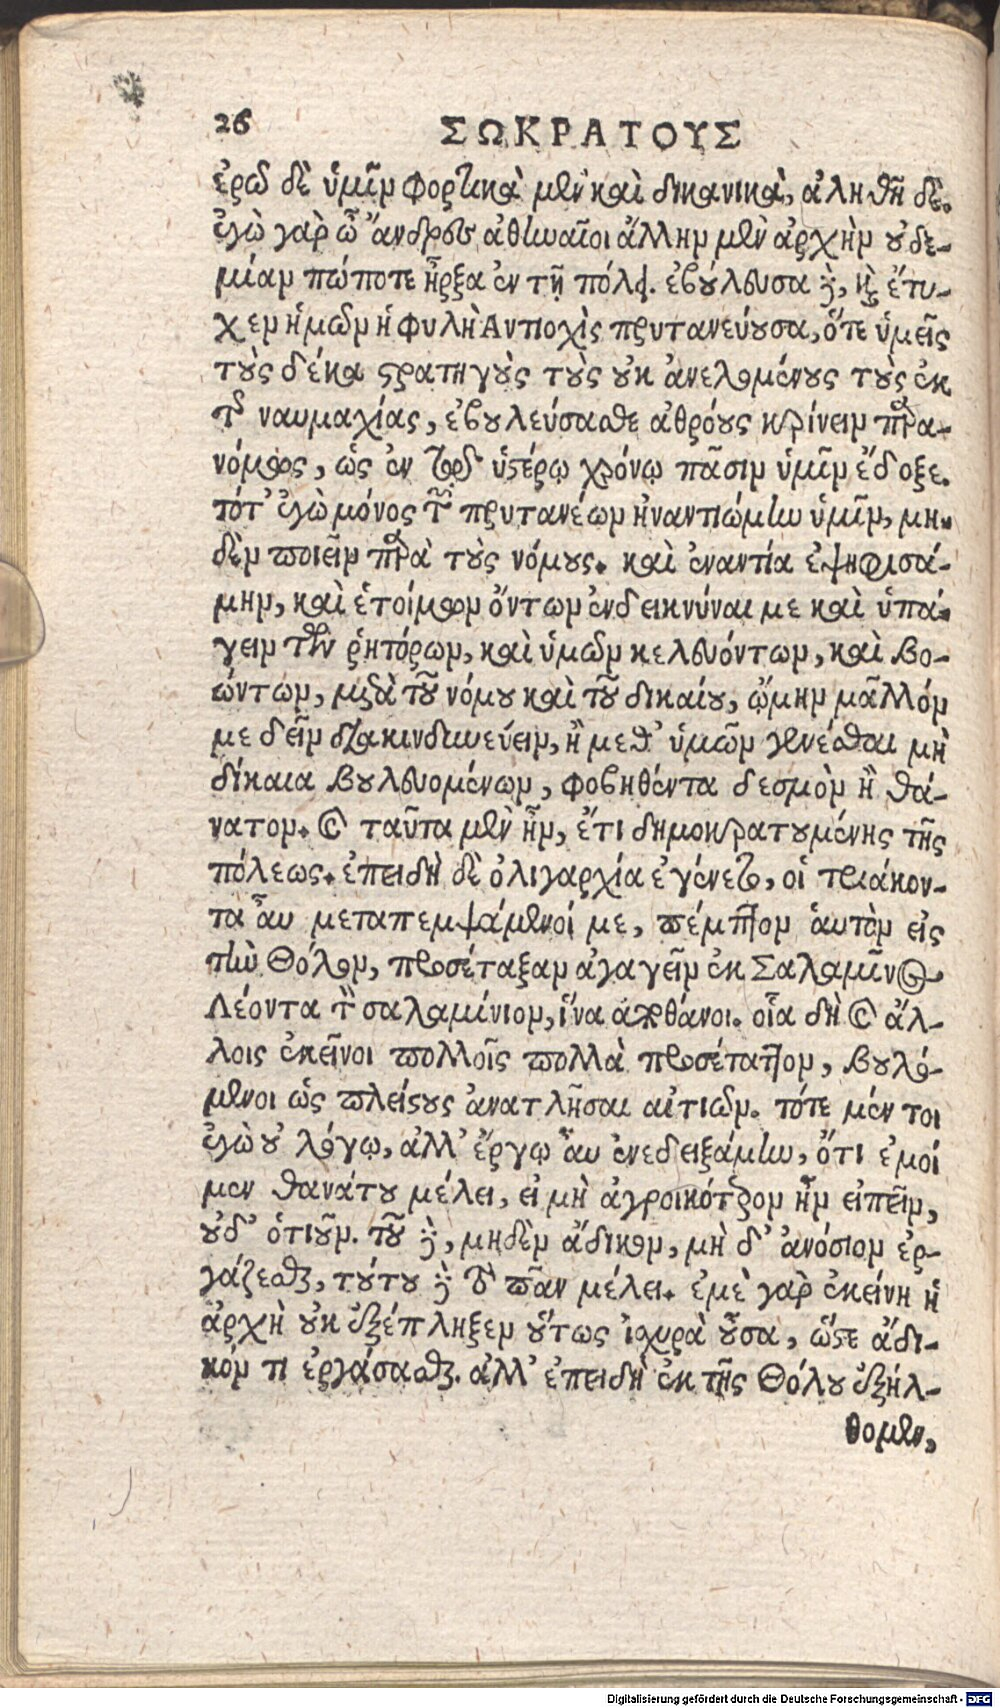 26 ΣΩΚΡΑΤΟΥΣ
ἐρῶ δὲ ὑμῖν φορτικὰ μὲν καὶ δικανικὰ, ἀληθῆ δὲ.
ἐγὼ γὰρ ὦ ἄνδρες ἀθηναῖοι ἄλλην μὲν ἀρχὴν οὐδε-
μίαν πώποτε ἦρξα ἐν τῇ πόλει. ἐβούλευσα δὲ, καὶ ἔτυ-
χεν ἡμῶν ἡ φυλὴ Ἀντιοχὶς πρυτανεύουσα, ὅτε ὑμεῖς
τοὺς δέκα στρατηγοὺς τοὺς οὐκ ἀνελομένους τοὺς ἐκ
τῆς ναυμαχίας, ἐβουλεύσασθε ἀθρόους κρίνειν παρα-
νόμως, ὡς ἐν τῷ ὑστέρῳ χρόνῳ πᾶσιν ὑμῖν ἔδοξε.
τότ' ἐγὼ μόνος τῶν πρυτανέων ἠναντιώμην ὑμῖν, μη-
δὲν ποιεῖν παρὰ τοὺς νόμους. καὶ ἐναντία ἐψηφισά-
μην, καὶ ἑτοίμων ὄντων ἐνδεικνύναι με καὶ ὑπά-
γειν τῶν ῥητόρων, καὶ ὑμῶν κελευόντων, καὶ βο-
ώντων, μετὰ τοῦ νόμου καὶ τοῦ δικαίου, ᾤμην μᾶλλόν
με δεῖν διακινδυνεύειν, ἢ μεθ' ὑμῶν γενέσθαι μὴ
δίκαια βουλευομένων, φοβηθέντα δεσμὸν ἢ θά-
νατον. καὶ ταῦτα μὲν ἦν, ἔτι δημοκρατουμένης τῆς
πόλεως. ἐπειδὴ δὲ ὀλιγαρχία ἐγένετο, οἱ τριάκον-
τα αὖ μεταπεμψάμενοί με, πέμπτον αὐτὸν εἰς
τὴν Θόλον, προσέταξαν ἀγαγεῖν ἐκ Σαλαμῖνος
Λέοντα τὸν σαλαμίνιον, ἵνα ἀποθάνοι. οἷα δὴ καὶ ἄλ-
λοις ἐκεῖνοι πολλοῖς πολλὰ προσέταττον, βουλό-
μενοι ὡς πλείστους ἀνατλῆσαι αἰτιῶν. τότε μέν τοι
ἐγὼ οὐ λόγῳ, ἀλλ' ἔργῳ αὖ ἐνεδειξάμην, ὅτι ἐμοί
μεν θανάτου μέλει, εἰ μὴ ἀγροικότερον ἦν εἰπεῖν,
οὐδ' ὁτιοῦν. τοῦ δὲ, μηδὲν ἄδικον, μὴ δ' ἀνόσιον ἐρ-
γάζεσθαι, τούτου δὲ τὸ πᾶν μέλει. ἐμὲ γὰρ ἐκείνη ἡ
ἀρχὴ οὐκ ἐξέπληξεν οὕτως ἰσχυρὰ οὖσα, ὥστε ἄδι-
κόν τι ἐργάσασθαι. ἀλλ' ἐπειδὴ ἐκ τῆς Θόλου ἐξήλ-
θομεν,
Digitalisierung gefördert durch die Deutsche Forschungsgemeinschaft - DFG